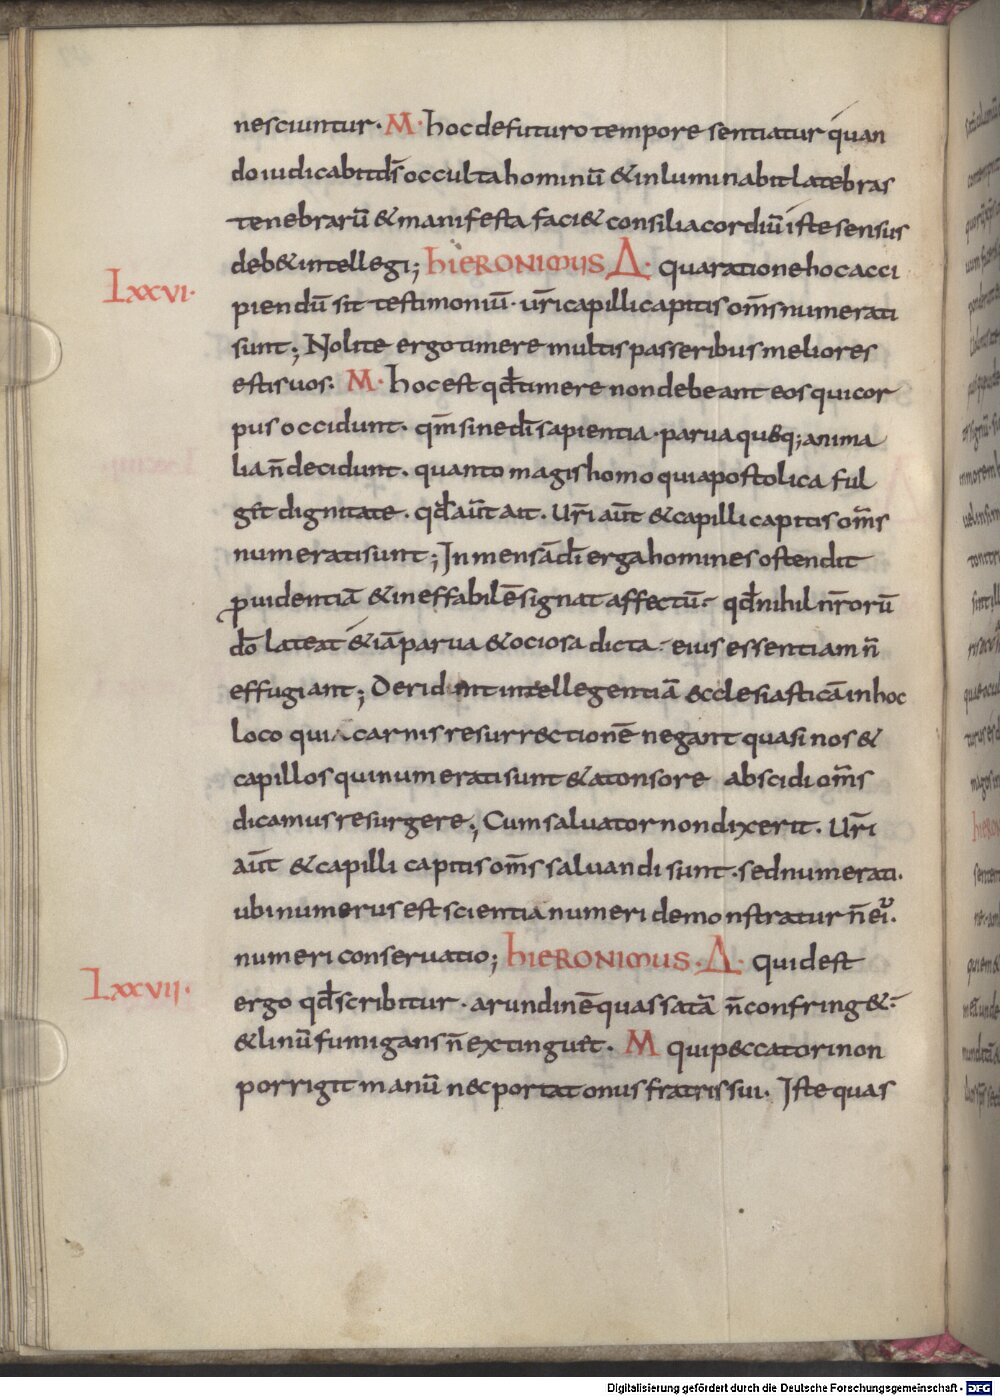 nesciuntur · M · hoc de futuro tempore sentiatur quan
do iudicabit d̅s occulta hominū & inluminabit latebras
tenebrarū & manifesta faci& consilia cordiū iste sensus
deb& intellegi; hIERONIMUS Δ · qua ratione hoc acci
Lxxvi ·
piendū sit testimoniū · ur̅i capilli capitis om̅s numerati
sunt; Nolite ergo timere multis passeribus meliores
estis uos : M · hoc est qd̅ timere non debeant eos qui cor
pus occidunt · qm̅ sine di̅ sapientia · parua quęq; anima
lia n̅ decidunt · quanto magis homo qui apostolica ful
g&it dignitate · qd̅ aut̅ ait · Ur̅i aut̅ & capilli capitis om̅s
numerati sunt; Jn mensā di̅ erga homines ostendit
ꝓuidentiā & ineffabilē signat affectū · qd̅ nihil nr̅orū
do̅ lateat & iā parua & ociosa dicta · eius essentiam n̅
effugiant; Derident intellegentiā ęcclesiasticā in hoc
loco qui carnis resurrectionē negant quasi nos &
capillos qui numerati sunt & a tonsore abscidi om̅s
dicamus resurgere; Cum saluator non dixerit · Ur̅i
aut̅ & capilli capitis om̅s saluandi sunt · sed numerati ·
ubi numerus est scientia numeri demonstratur n̅ ei ·
numeri conseruatio; hIERONIMUS · Δ · Quid est
Lxxvii ·
ergo qd̅ scribitur · arundinē quassatā n̅ confring& :
& linū fumigans n̅ extinguet · M qui peccatori non
porrigit manū nec portat onus fratris sui · Jste quas
Digitalisierung gefördert durch die Deutsche Forschungsgemeinschaft - DFG